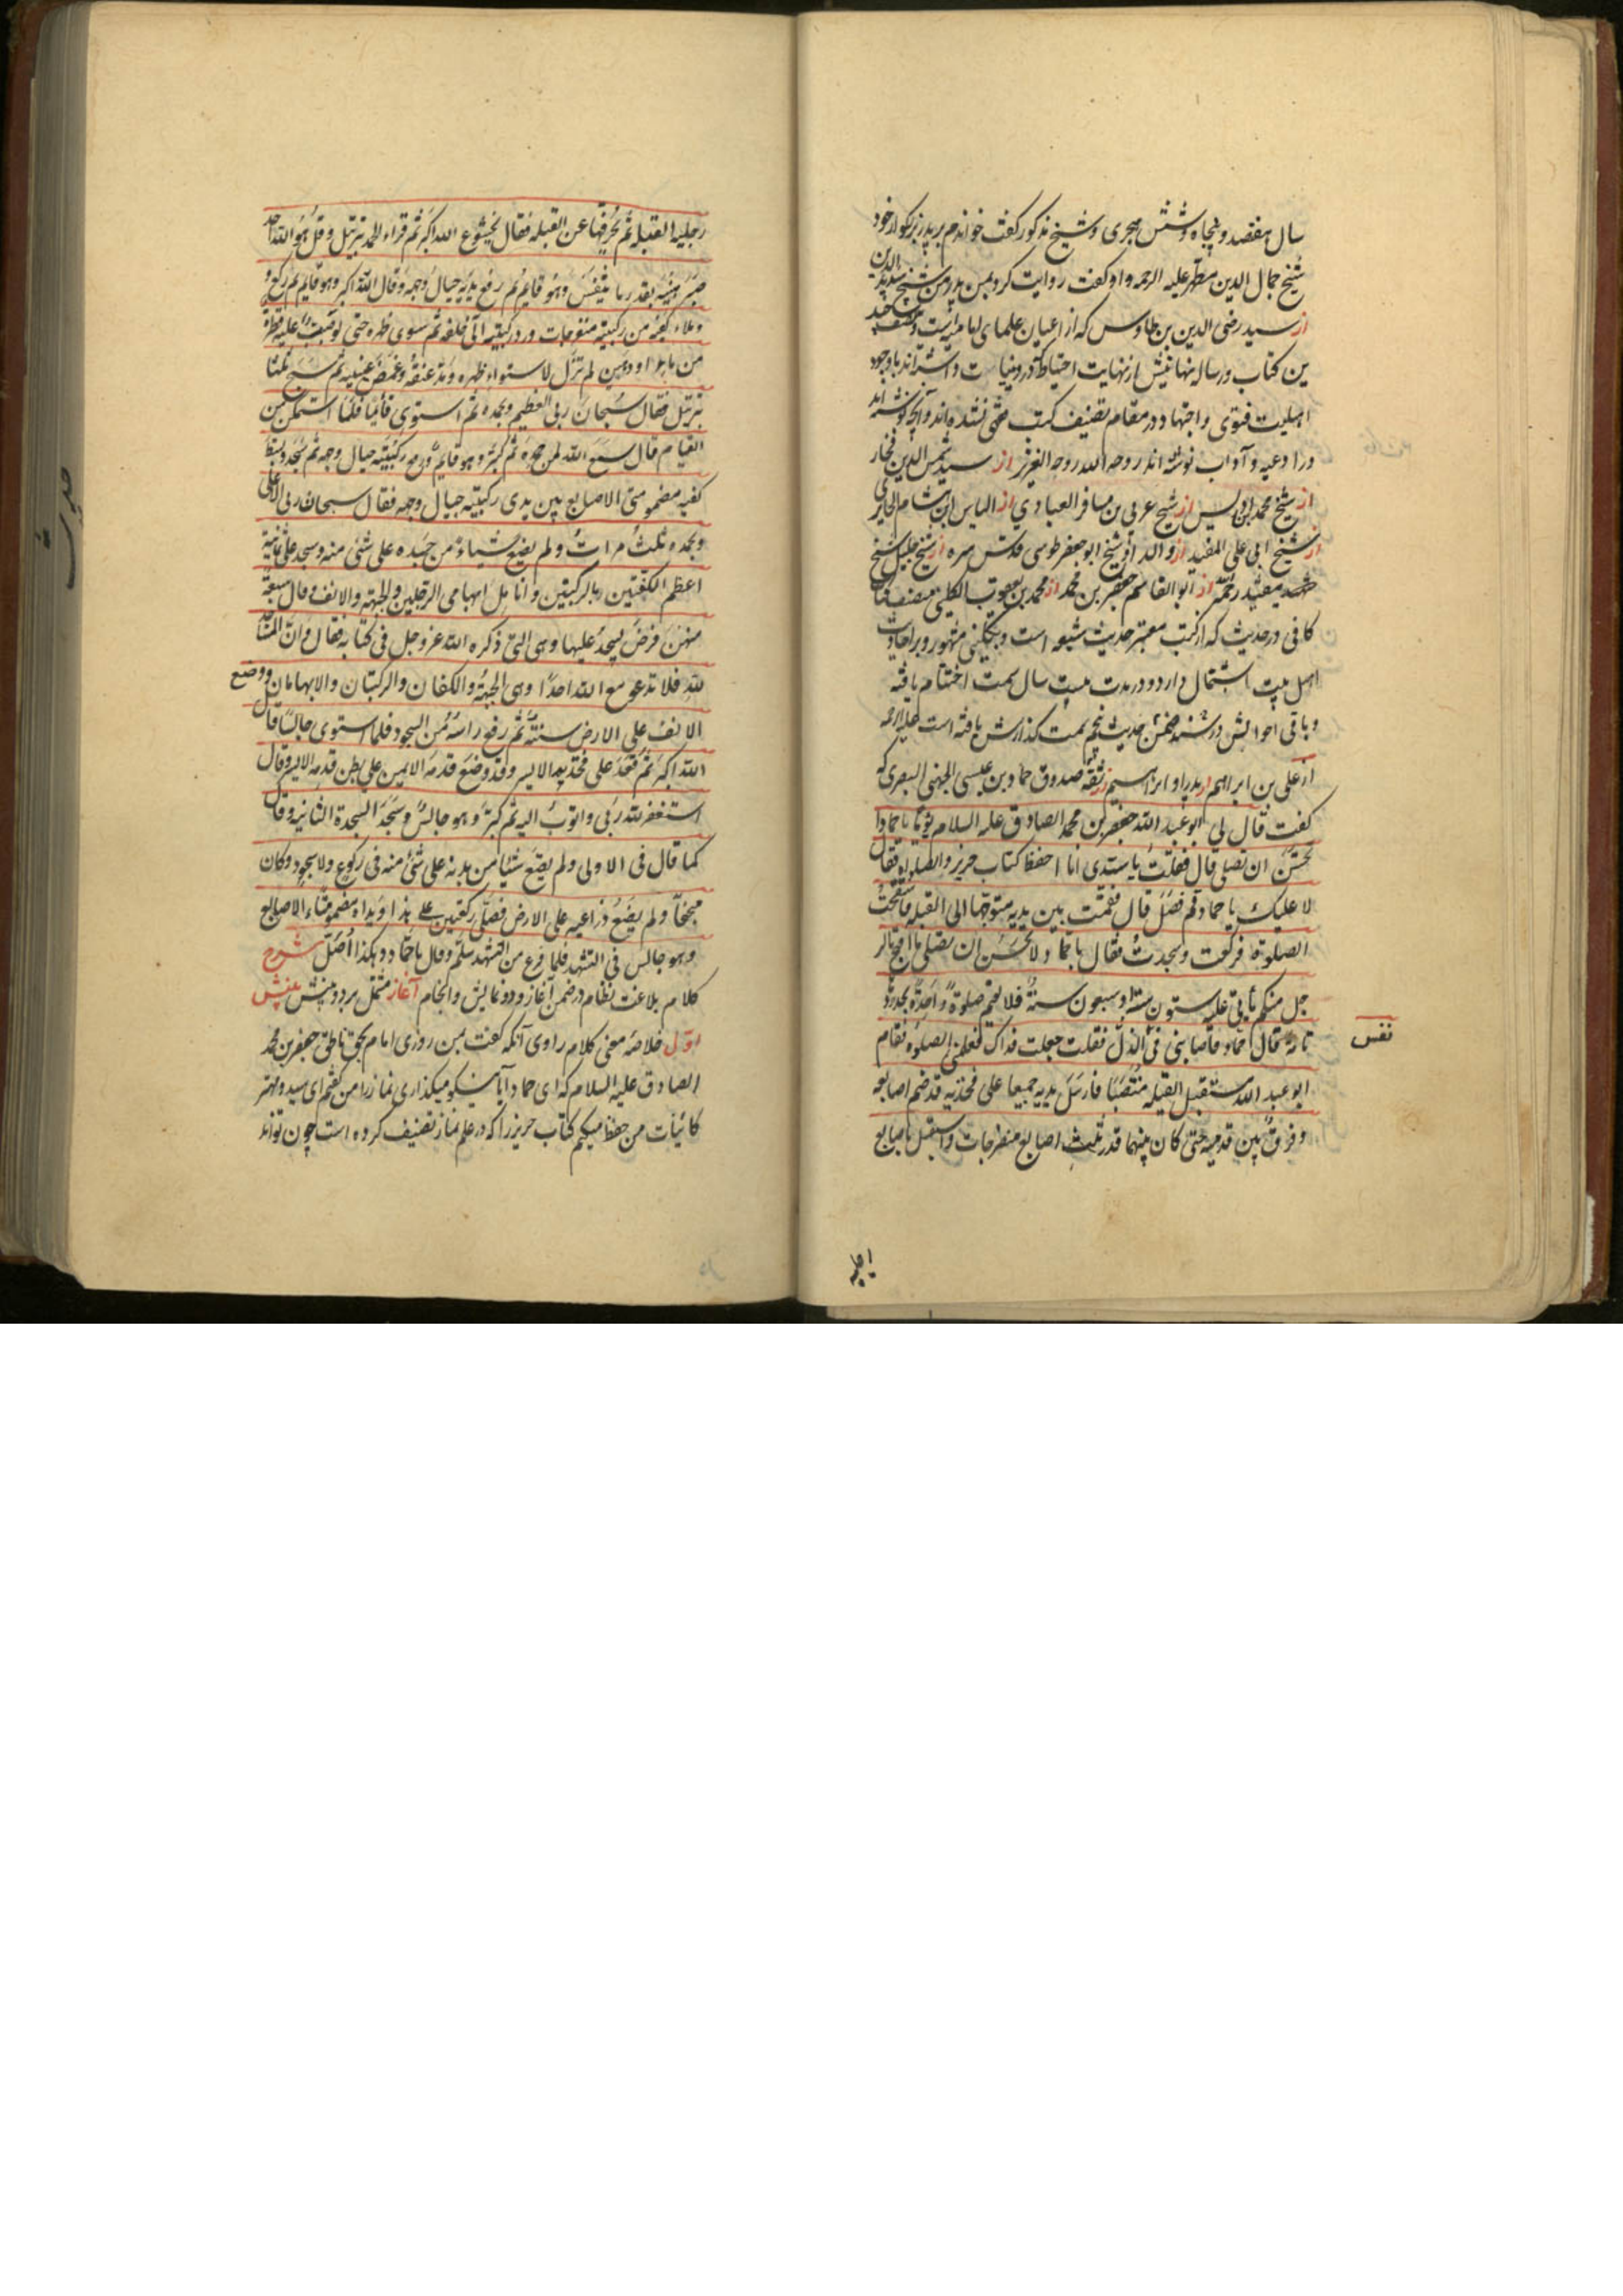 سال هفتصد و پنجاه و شش هجری و شیخ مذکور گفت خواندم بر پدر بزرگوار خود
شیخ جمال الدین مطهر علیه الرحمه و او گفت روایت کرد بمن پدر من شیخ سدید الدین
از سید رضی الدین بن طاوس که از اعیان علمای امامیه است و مصنف چند
ین کتاب و رساله منهاغیش از نهایت احتیاط که در دنیا است و اشته‌اند با وجود
اهلیت فتوی و اجتهاد در مقام تصنیف کتب فقهی نشده‌اند و آنچه نوشته‌اند
در ادعیه و آداب نوشته اند روحه الله روحه العزیز از سید شمس الدین فخار
از شیخ محمد بن ادریس از شیخ عربی بن مسافر العبادی از الیاس ابن هشام الحایری
از شیخ ابی علی المفید از والد او شیخ ابو جعفر طوسی قدس سره از شیخ جلیل شیخ
مفید رحمه از ابو القاسم جعفر بن محمد از محمد بن یعقوب الکلینی مصنف کتاب
کافی در حدیث که از کتب معتبر حدیث شیعه است و بکلینی مشهور و بر احادیث
اهل بیت اشتمال دارد و در مدت بیست سال سمت اختتام یافته
و باقی احوالش در ضمن حدیث پنجم سمت گذارش یافته است علیه الرحمه
از علی بن ابراهیم از پدر او ابراهیم از ثقه صدوق حماد بن عیسی الجهنی البصری که
گفت قال لی ابو عبد الله جعفر بن محمد الصادق علیه السلام یوما یا حماد ا
تحسن ان تصلی قال فقلت یا سیدی انا احفظ کتاب حریز و الصلوة فقال
لا علیک یا حماد قم فصل قال فقمت بین یدیه متوجها الی القبله فاستفتحت
الصلوة فرکعت و سجدت فقال یا حماد لا تحسن ان تصلی ما اقبح بالر
جل منکم یأتی علیه ستون سنة او سبعون سنة فلا یقیم صلوة واحدة بحدودها
تامة قال حماد فاصابنی فی الذل فقلت جعلت فداک فعلمنی الصلوة فقام
نفس
ابو عبد الله مستقبل القبله منتصبا فارسل یدیه جمیعا علی فخذیه قد ضم اصابعه
و فرق بین قدمیه حتی کان بینهما قدر ثلث اصابع منفرجات و استقبل باصابع
رجلیه القبله ثم یحرفهما عن القبله فقال بخشوع الله اکبر ثم قراء الحمد بترتیل و قل هو الله احد
صبر هنیئة بقدر ما یتنفس و هو قایم ثم رفع یدیه حیال وجهه و قال الله اکبر و هو قایم ثم رکع و
و ملاء کفیه من رکبتیه منفرجات و رد رکبتیه الی خلفه ثم سوی ظهره حتی لو صبت علیه قطرة
من ماء او دهن لم تزل لاستواء ظهره و مد عنقه و غمض عینیه ثم سبح ثلثا
بترتیل فقال سبحان ربی العظیم و بحمده ثم استوی قائما فلما استمکن من
القیام قال سمع الله لمن حمده ثم کبر و هو قایم و رفع یدیه حیال وجهه ثم سجد و بسط
کفیه مضمومتی الاصابع بین یدی رکبتیه حیال وجهه فقال سبحان ربی الاعلی
و بحمده ثلث مرات و لم یضع شیاء من جسده علی شئ منه و سجد علی ثمانیة
اعظم الکفین و الرکبتین و انامل ابهامی الرجلین و الجبهة و الانف و قال سبعة
منهن فرض یسجد علیها و هی التی ذکره الله عز و جل فی کتابه فقال و ان المساجد
لله فلا تدعو مع الله احدا و هی الجبهة و الکفان و الرکبتان و الابهامان و وضع
الانف علی الارض سنة ثم رفع راسه من السجود فلما استوی جالسا قال
الله اکبر ثم قعد علی فخذیه الایسر و قد وضع قدمه الایمن علی بطن قدمه الایسر و قال
استغفر الله ربی و اتوب الیه ثم کبر و هو جالس و سجد السجدة الثانیة و قال
کما قال فی الاولی و لم یضع شیئا من بدنه علی شئ منه فی رکوع و لا سجود و کان
مجنحا و لم یضع ذراعیه علی الارض فصلی رکعتین علی هذا و یداه مضمومتاء الاصابع
و هو جالس فی التشهد فلما فرغ من التشهد سلم و قال یا حماد هکذا اصل شرح
کلام بلاغت نظام در ضمن آغاز و دو نمایش و انجام آغاز مشتمل بر دو بینش بینش
اول خلاصه معنی کلام راوی آنکه گفت بمن روزی امام بحق ناطق جعفر بن محمد
الصادق علیه السلام که ای حماد آیا نیکو میگذاری نماز را من گفتم ای سید و مهتر
کائنات من حفظ میکنم کتاب حریز را که در علم نماز تصنیف کرده است چون تواند